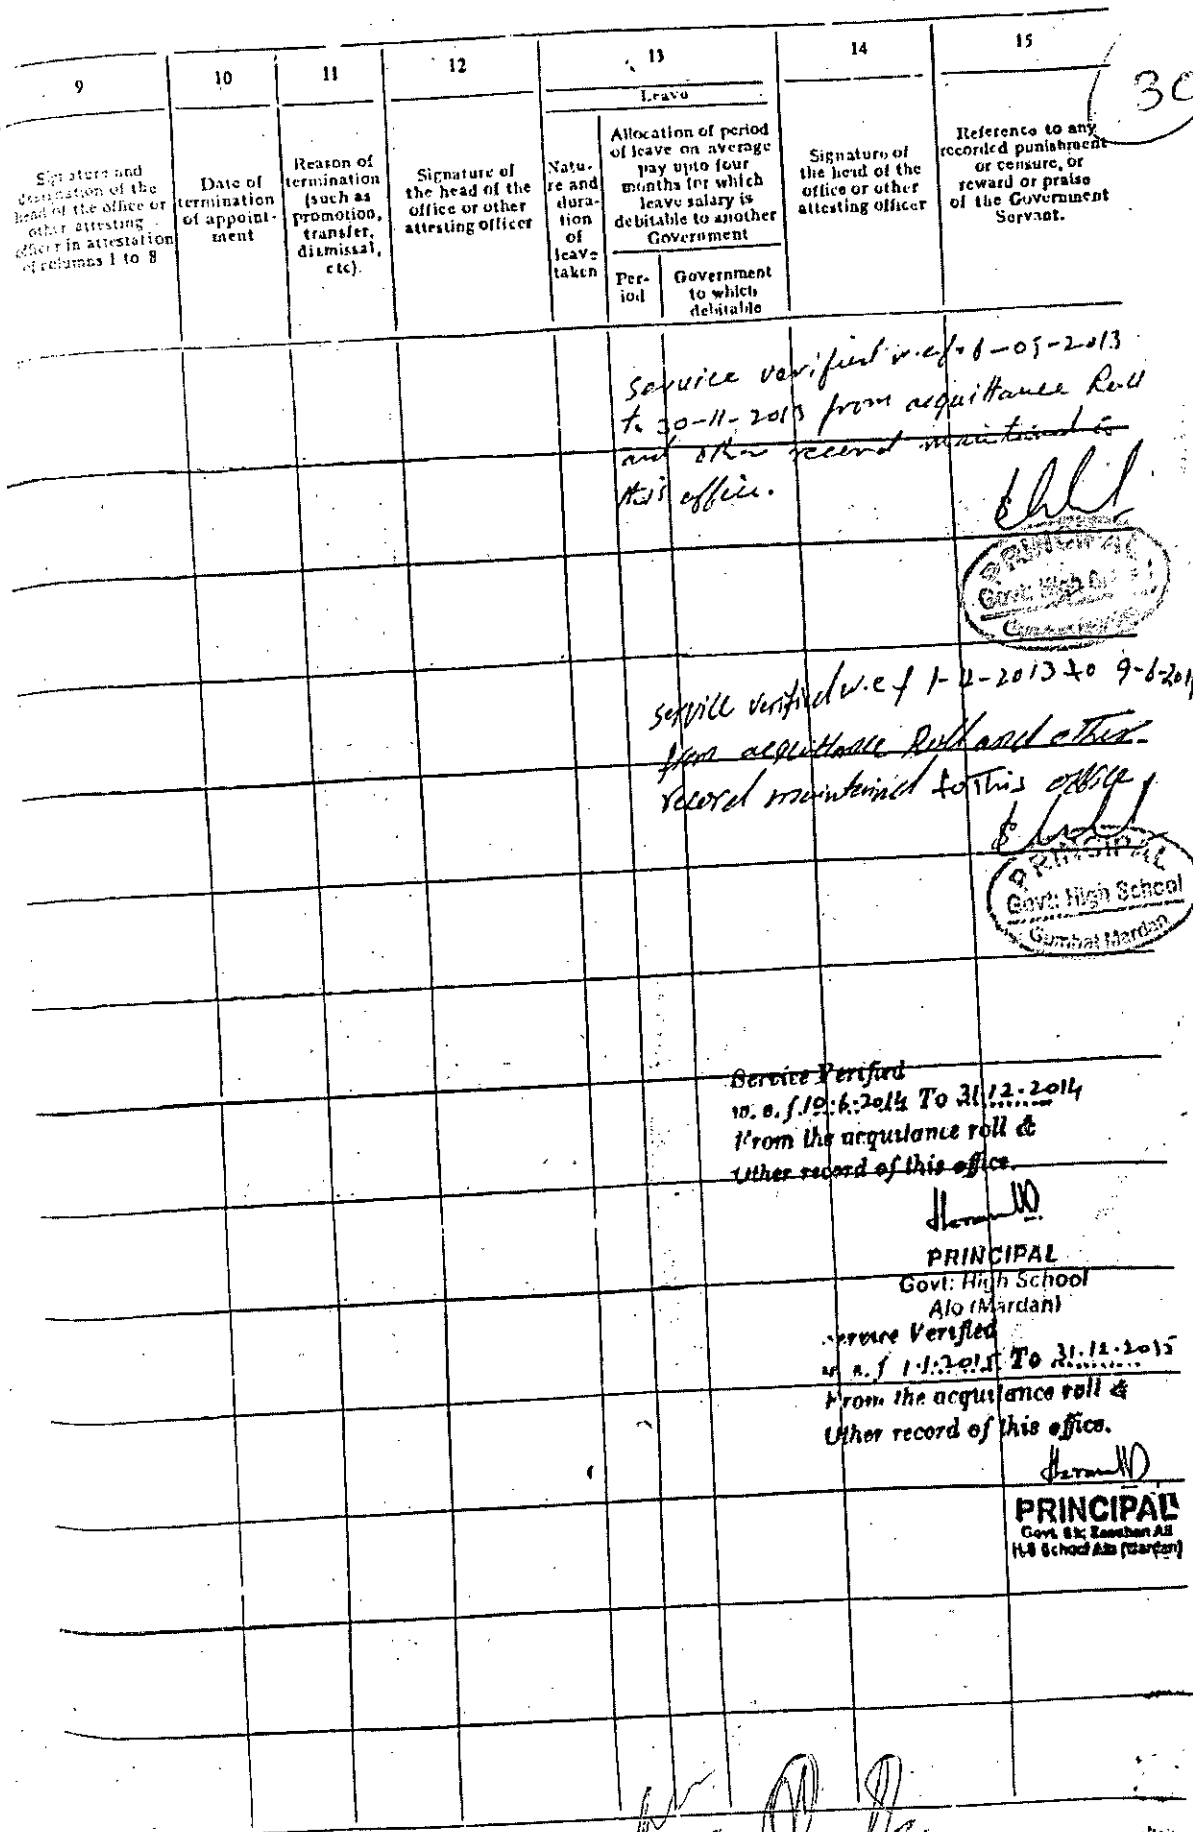 9 10 11 12 13 14 15
30
Leave
Signature and
designation of the
head of the office or
other attesting
officer in attestation
of columns 1 to 8
Date of
termination
of appoint-
ment
Reason of
termination
(such as
promotion,
transfer,
dismissal,
etc).
Signature of
the head of the
office or other
attesting officer
Natu-
re and
dura-
tion
of
leave
taken
Allocation of period
of leave on average
pay upto four
months for which
leave salary is
debitable to another
Government
Per-
iod
Government
to which
debitable
Signature of
the head of the
office or other
attesting officer
Reference to any
recorded punishment
or censure, or
reward or praise
of the Government
Servant.
Service verified w.e.f.
to 30-11-2013 from acquittance Roll
and other record maintained
this office.
PRINCIPAL
Govt: High
Service verified w.e.f 2013 to 9-6-201
from acquittance Roll and other
record maintained to This office
PRINCIPAL
Govt: High School
Gumbat Mardan
Service Verified
w. e. f. 10.6.2014 To 31.12.2014
From the acquilance roll &
Other record of this office.
PRINCIPAL
Govt: High School
Alo (Mardan)
Service Verified
w. e. f 1.1.2015 To 31.12.2015
From the acquilance roll &
Other record of this office.
PRINCIPAL
Govt. Zeeshan Ali
H.S School Alo (Mardan)